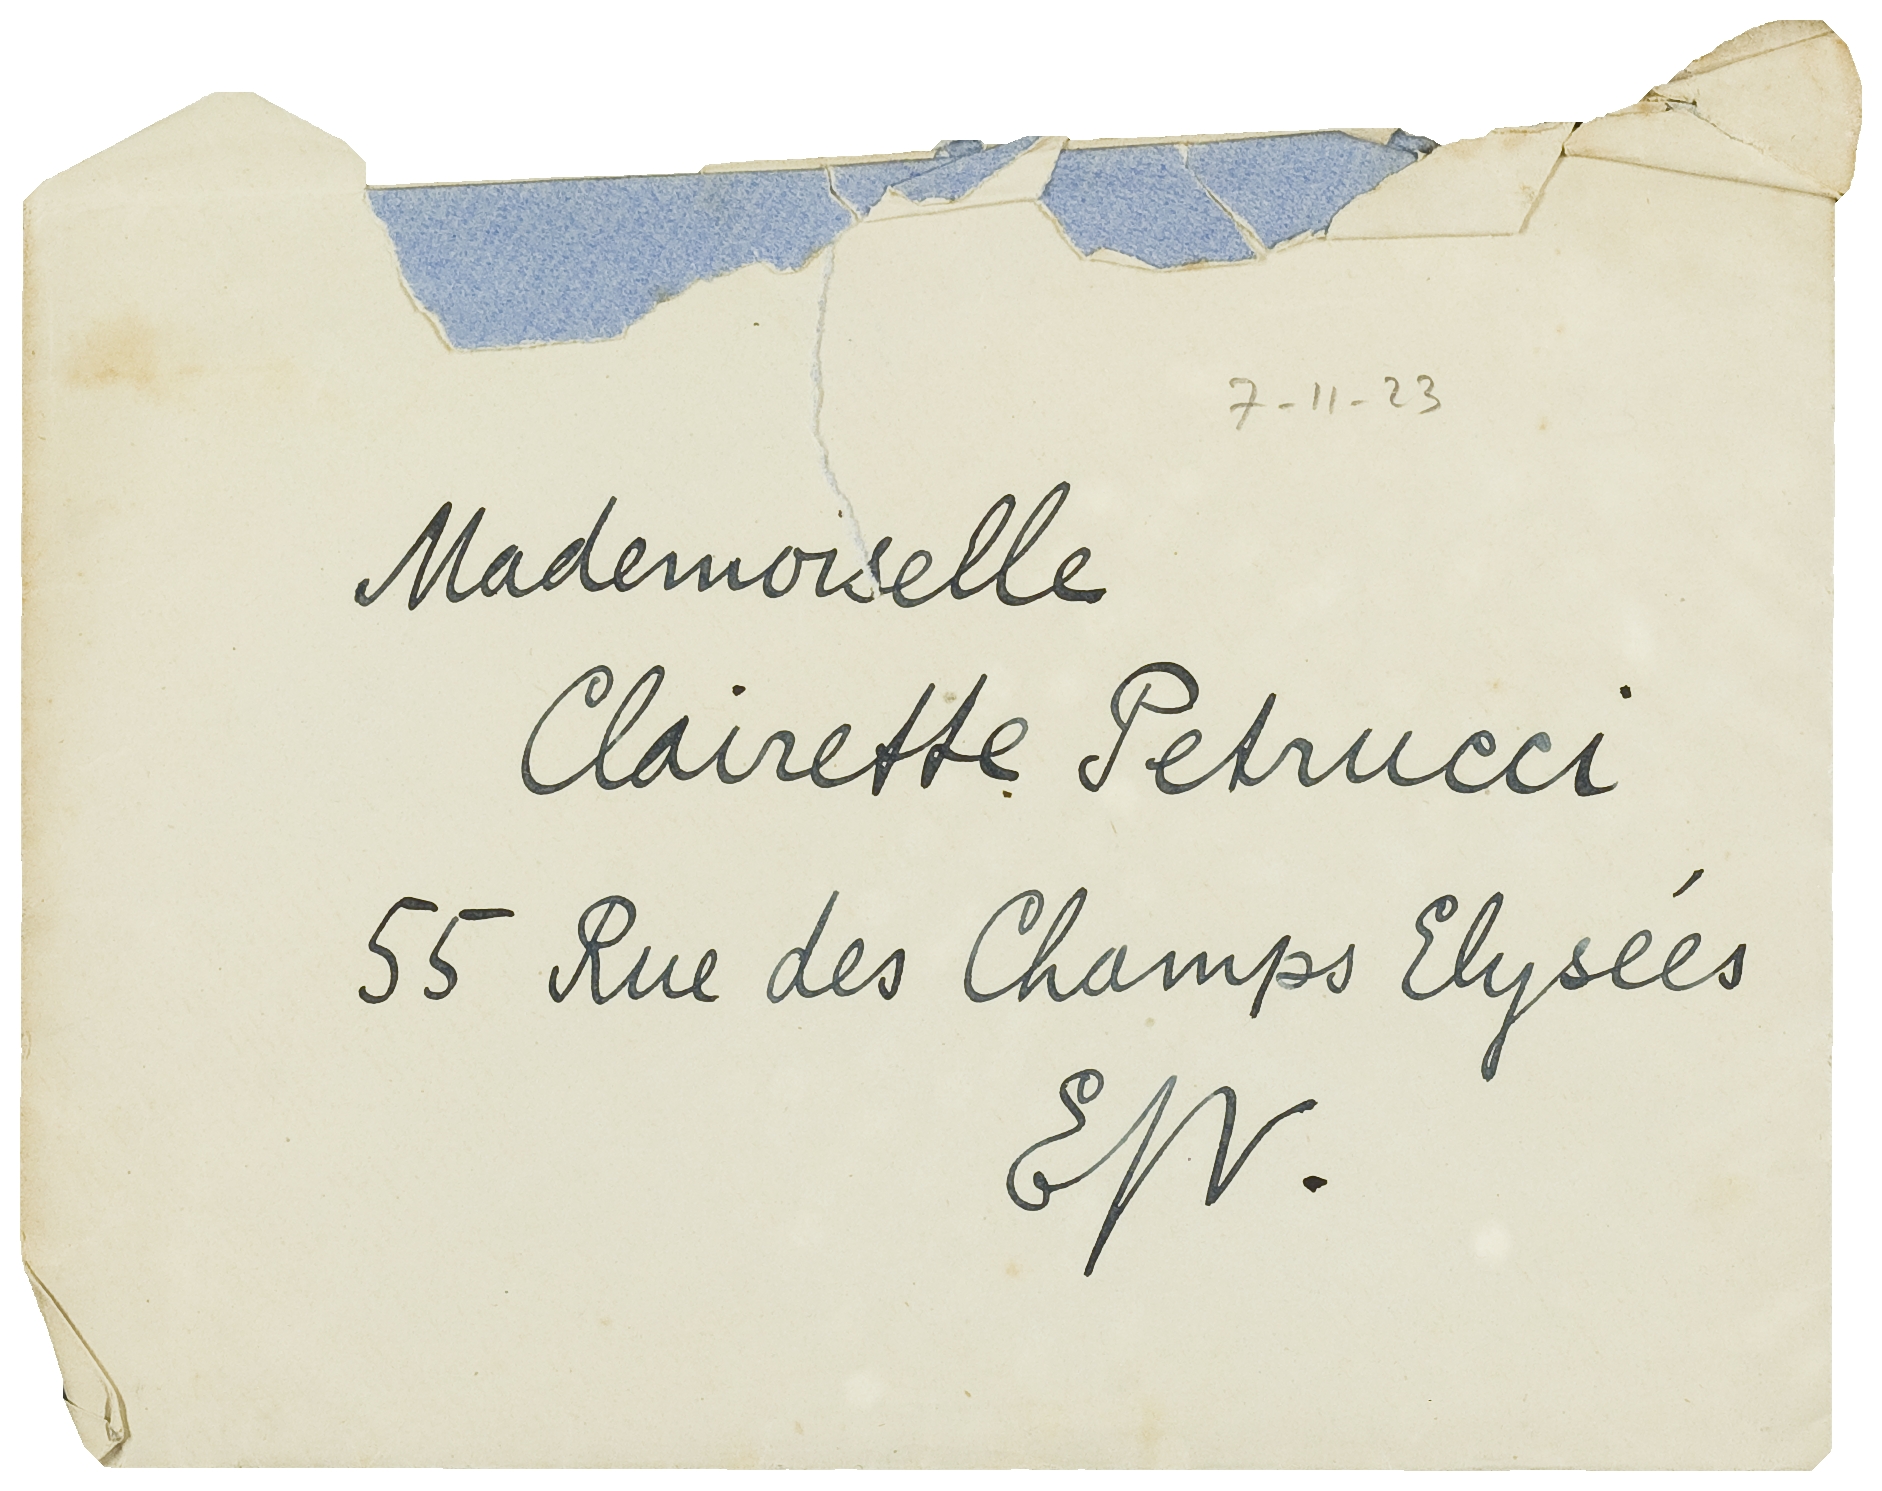 7-11-23
Mademoiselle
Clairette Petrucci
55 Rue des Champs Elysées
E/V.